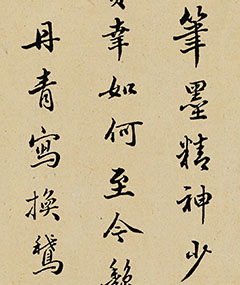 筆墨精神少
幸如何至今
丹青寫換鵞